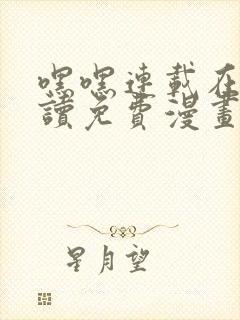 嘿嘿連載在
讀免費漫畫
星月望